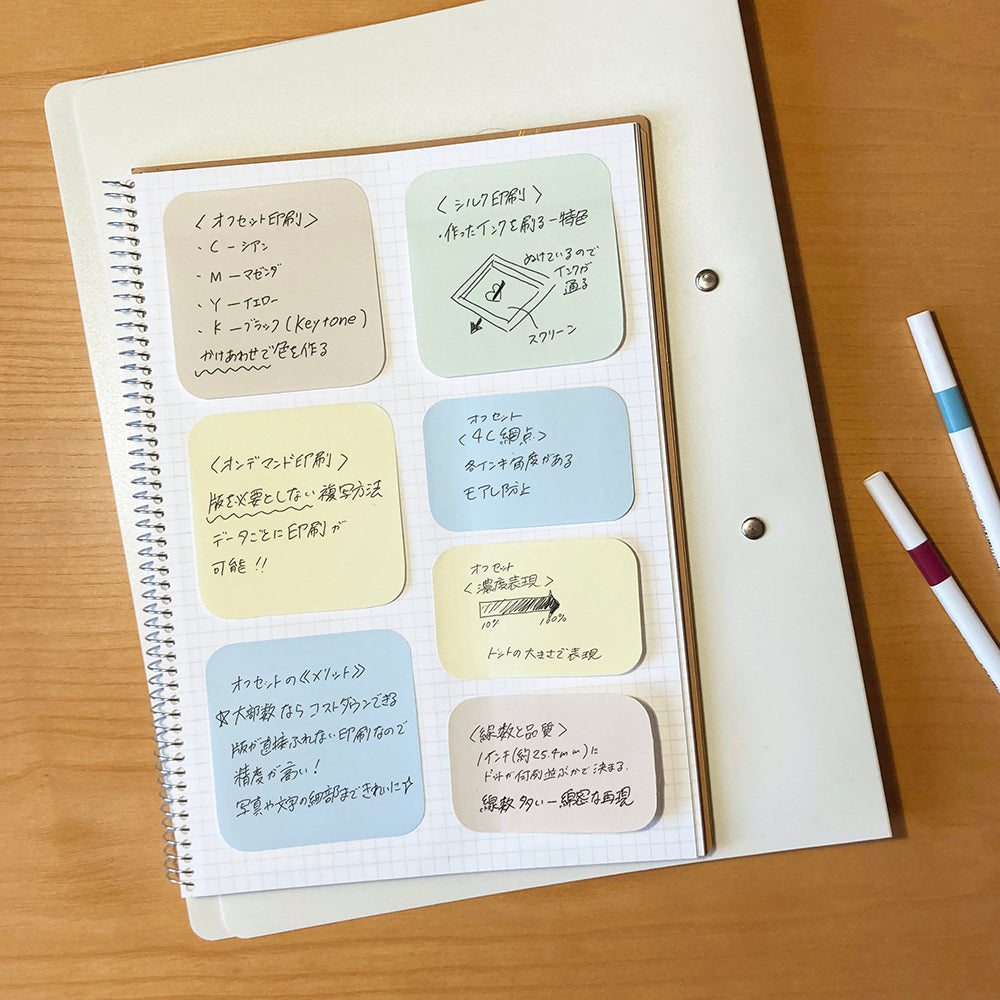 〈オフセット印刷〉
・C ー シアン
・M ー マゼンダ
・Y ー イエロー
・K ー ブラック(Keytone)
かけあわせで色を作る
〈オンデマンド印刷〉
版を必要としない複写方法
データごとに印刷が
可能!!
オフセットの《メリット》
☆大部数ならコストダウンできる
版が直接ふれない印刷なので
精度が高い!
写真や文字の細部まできれいに☆
〈シルク印刷〉
・作ったインクを刷るー特色
ぬけているので
インクが
通る
スクリーン
オフセット
〈4C網点〉
各インキ角度がある
モアレ防止
オフセット
〈濃度表現〉
10% 100%
ドットの大きさで表現
〈線数と品質〉
1インチ(約25.4mm)に
ドットが何列並ぶかで決まる.
線数多いー綿密な再現